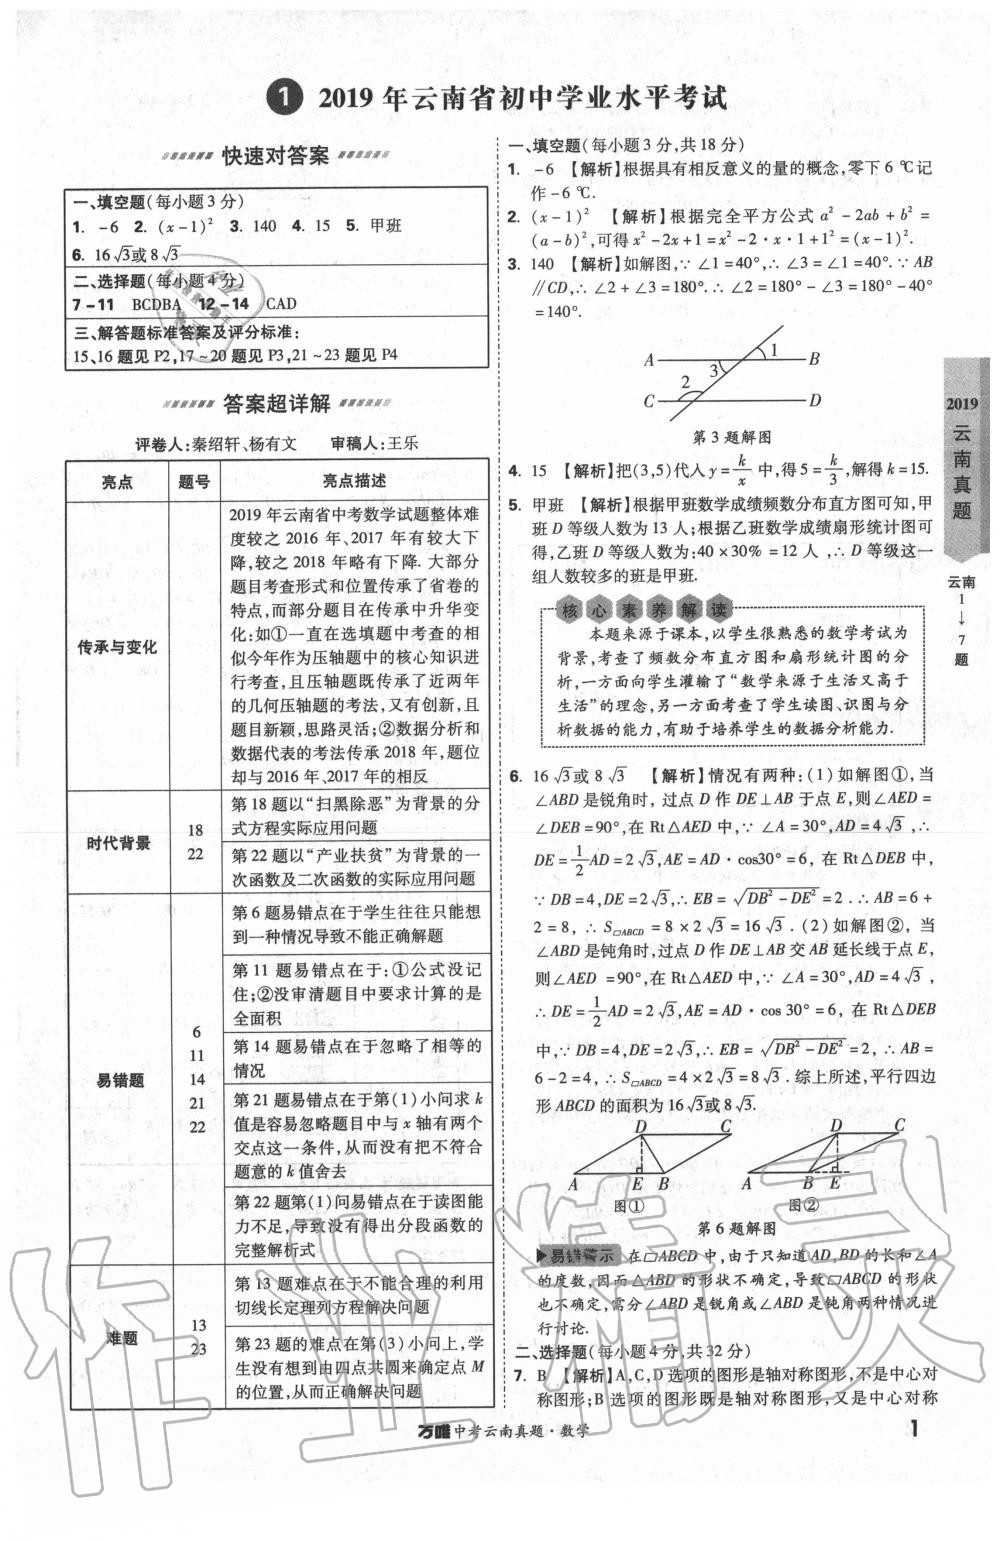 1 2019年云南省初中学业水平考试
快速对答案
一、填空题(每小题3分)
1. －6 2. (x－1)² 3. 140 4. 15 5. 甲班
6. 16√3或8√3
二、选择题(每小题4分)
7－11 BCDBA 12－14 CAD
三、解答题标准答案及评分标准:
15、16题见P2,17~20题见P3,21~23题见P4
答案超详解
评卷人:秦绍轩、杨有文 审稿人:王乐
亮点 题号 亮点描述
传承与变化
2019年云南省中考数学试题整体难
度较之2016年、2017年有较大下
降,较之2018年略有下降. 大部分
题目考查形式和位置传承了省卷的
特点,而部分题目在传承中升华变
化:如①一直在选填题中考查的相
似今年作为压轴题中的核心知识进
行考查,且压轴题既传承了近两年
的几何压轴题的考法,又有创新,且
题目新颖,思路灵活;②数据分析和
数据代表的考法传承2018年,题位
却与2016年、2017年的相反
时代背景
18
22
第18题以“扫黑除恶”为背景的分
式方程实际应用问题
第22题以“产业扶贫”为背景的一
次函数及二次函数的实际应用问题
易错题
6
11
14
21
22
第6题易错点在于学生往往只能想
到一种情况导致不能正确解题
第11题易错点在于:①公式没记
住;②没审清题目中要求计算的是
全面积
第14题易错点在于忽略了相等的
情况
第21题易错点在于第(1)小问求k
值是容易忽略题目中与x轴有两个
交点这一条件,从而没有把不符合
题意的k值舍去
第22题第(1)问易错点在于读图能
力不足,导致没有得出分段函数的
完整解析式
难题
13
23
第13题难点在于不能合理的利用
切线长定理列方程解决问题
第23题的难点在第(3)小问上,学
生没有想到由四点共圆来确定点M
的位置,从而正确解决问题
一、填空题(每小题3分,共18分)
1. －6 【解析】根据具有相反意义的量的概念,零下6 ℃记
作－6 ℃.
2. (x－1)² 【解析】根据完全平方公式a²－2ab＋b²＝
(a－b)²,可得x²－2x＋1＝x²－2·x·1＋1²＝(x－1)².
3. 140 【解析】如解图,∵∠1＝40°,∴∠3＝∠1＝40°.∵AB
∥CD,∴∠2＋∠3＝180°.∴∠2＝180°－∠3＝180°－40°
＝140°.
A 3 1 B
C 2 D
第3题解图
4. 15 【解析】把(3,5)代入y＝k/x中,得5＝k/3,解得k＝15.
5. 甲班 【解析】根据甲班数学成绩频数分布直方图可知,甲
班D等级人数为13人;根据乙班数学成绩扇形统计图可
得,乙班D等级人数为:40×30%＝12人,∴D等级这一
组人数较多的班是甲班.
核心素养解读
本题来源于课本,以学生很熟悉的数学考试为
背景,考查了频数分布直方图和扇形统计图的分
析,一方面向学生灌输了“数学来源于生活又高于
生活”的理念,另一方面考查了学生读图、识图与分
析数据的能力,有助于培养学生的数据分析能力.
6. 16√3或8√3 【解析】情况有两种:(1)如解图①,当
∠ABD是锐角时,过点D作DE⊥AB于点E,则∠AED＝
∠DEB＝90°,在Rt△AED中,∵∠A＝30°,AD＝4√3,∴
DE＝1/2AD＝2√3,AE＝AD·cos30°＝6,在Rt△DEB中,
∵DB＝4,DE＝2√3,∴EB＝√(DB²－DE²)＝2.∴AB＝6＋
2＝8,∴S▱ABCD＝8×2√3＝16√3.(2)如解图②,当
∠ABD是钝角时,过点D作DE⊥AB交AB延长线于点E,
则∠AED＝90°,在Rt△AED中,∵∠A＝30°,AD＝4√3,
∴DE＝1/2AD＝2√3,AE＝AD·cos 30°＝6,在Rt△DEB
中,∵DB＝4,DE＝2√3,∴EB＝√(DB²－DE²)＝2,∴AB＝
6－2＝4,∴S▱ABCD＝4×2√3＝8√3.综上所述,平行四边
形ABCD的面积为16√3或8√3.
D C D C
A E B A B E
图① 图②
第6题解图
易错警示 在▱ABCD中,由于只知道AD,BD的长和∠A
的度数,因而△ABD的形状不确定,导致▱ABCD的形状
也不确定,需分∠ABD是锐角或∠ABD是钝角两种情况进
行讨论.
二、选择题(每小题4分,共32分)
7. B 【解析】A,C,D选项的图形是轴对称图形,不是中心对
称图形;B选项的图形既是轴对称图形,又是中心对称
2019
云南真题
云南
1
↓
7
题
万唯中考云南真题·数学
1
作业精灵